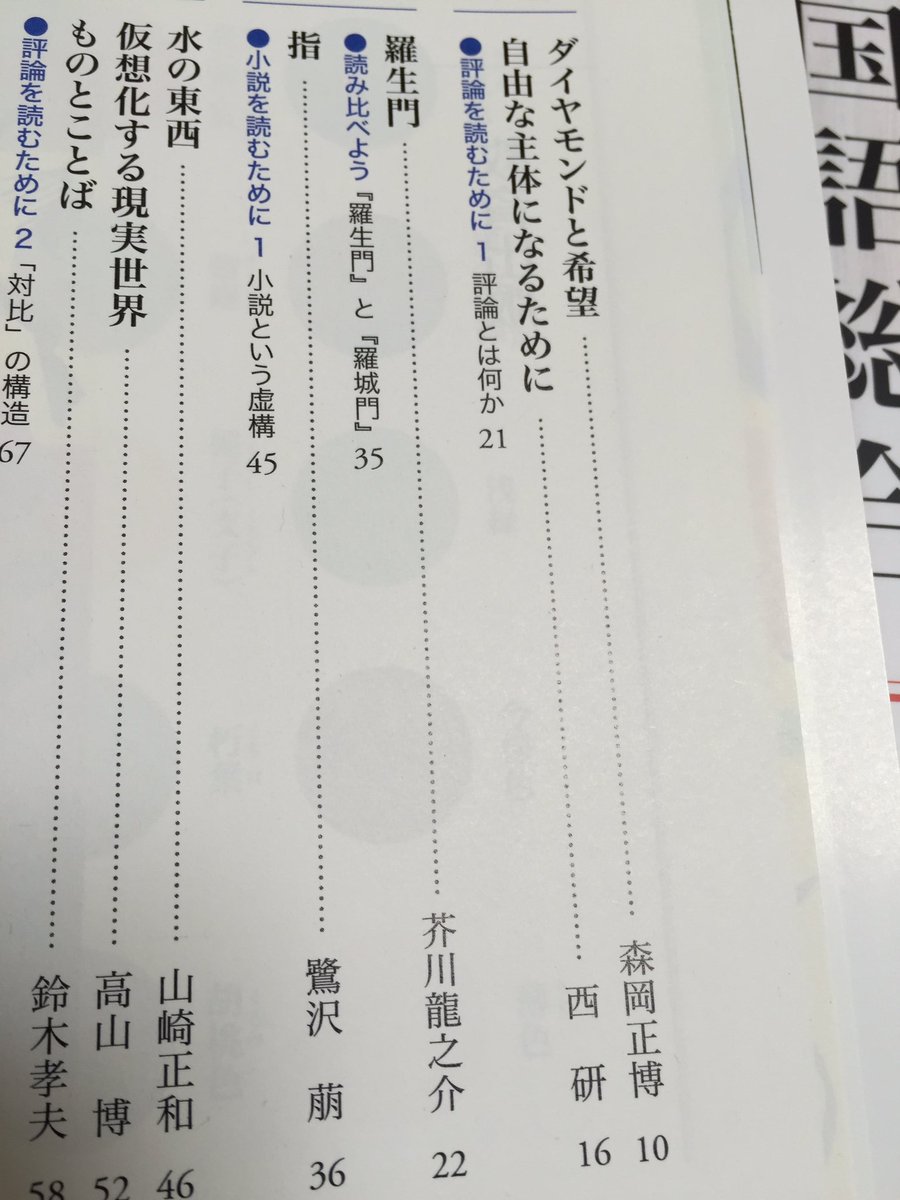 国語総合
ダイヤモンドと希望 森岡正博 10
自由な主体になるために 西 研 16
●評論を読むために 1 評論とは何か 21
羅生門 芥川龍之介 22
●読み比べよう 『羅生門』と『羅城門』 35
指 鷺沢 萠 36
●小説を読むために 1 小説という虚構 45
水の東西 山崎正和 46
仮想化する現実世界 高山 博 52
ものとことば 鈴木孝夫 58
●評論を読むために 2 「対比」の構造 67